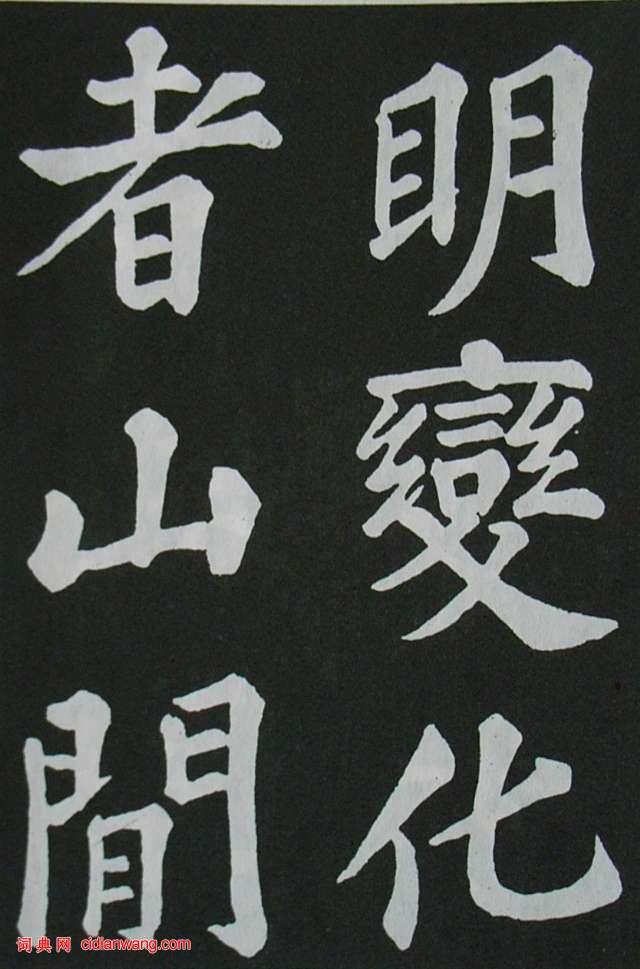 明變化
者山間
词典网 cidianwang.com